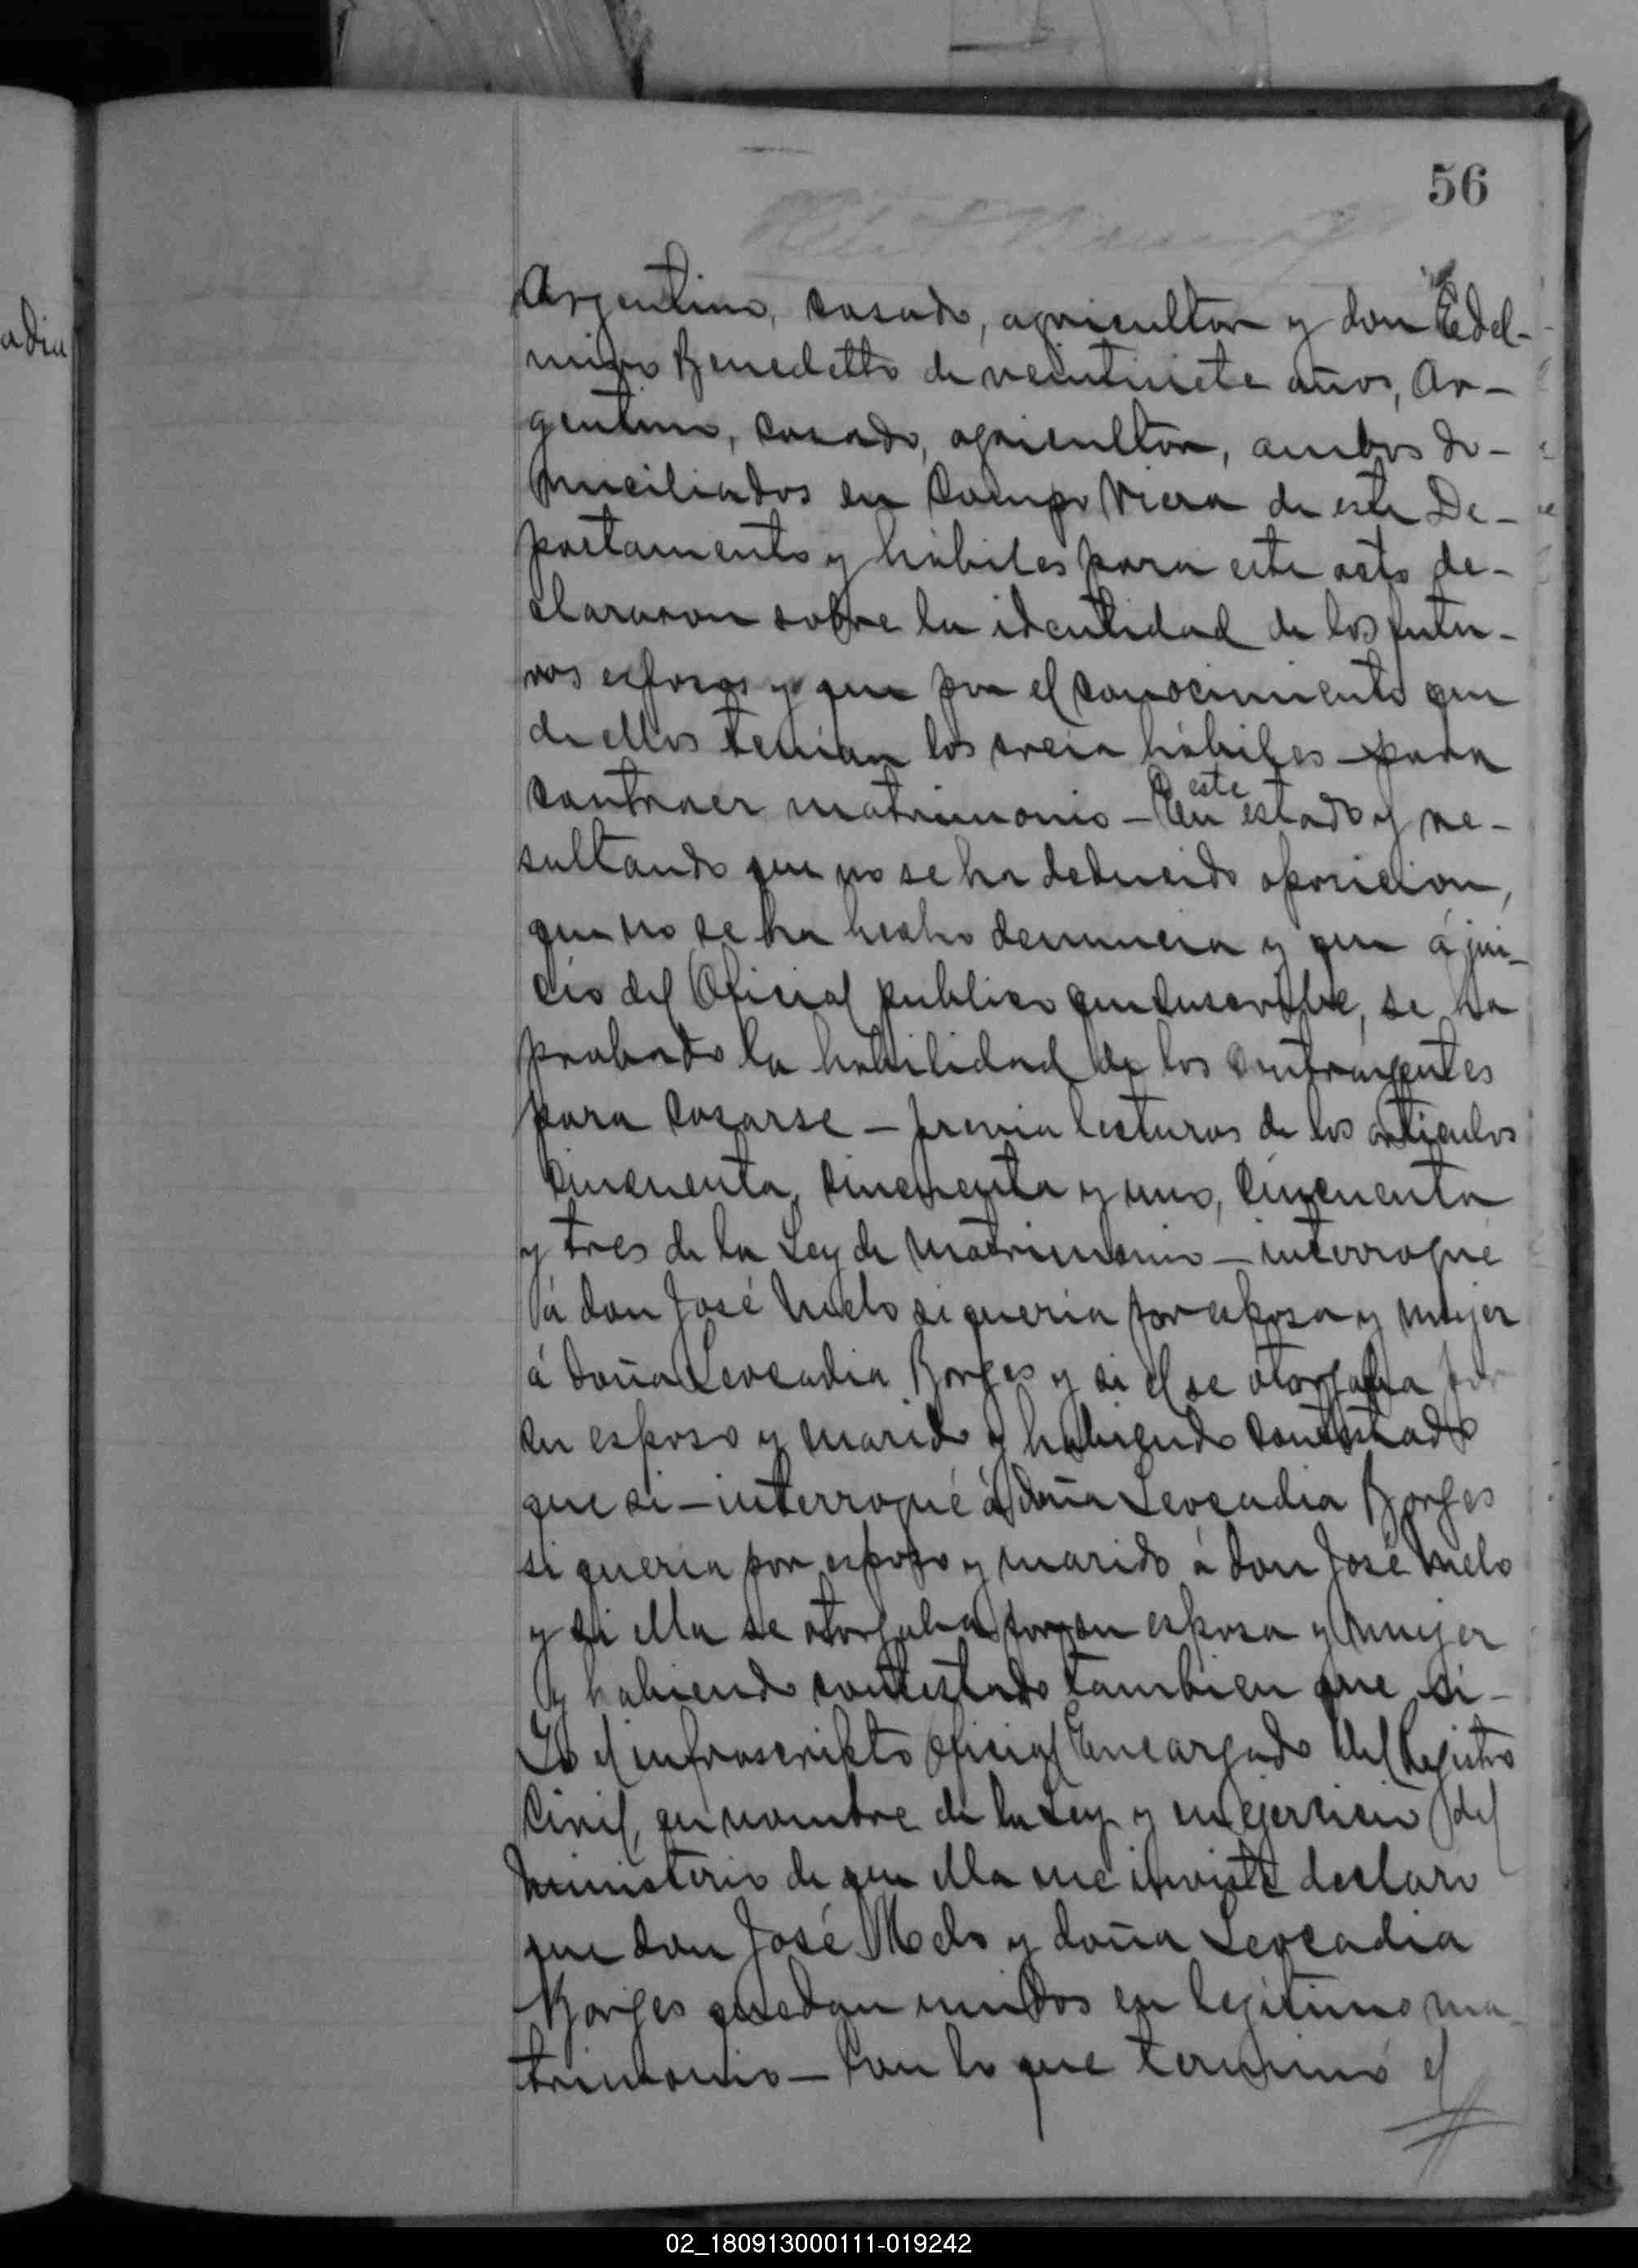 56
Argentino, casado, agricultor y don Edel-
miro Benedetto de veintisiete años, Ar-
gentino, casado, agricultor, ambos do-
miciliados en Campo Viera de este De-
partamento y hábiles para este acto de-
clararon sobre la identidad de los futu-
ros esposos y que por el conocimiento que
de ellos tenian los creia hábiles para
contraer matrimonio - En este estado y re-
sultando que no se ha deducido oposicion,
que no se ha hecho denuncia y que á jui-
cio del Oficial publico que suscribe, se ha
probado la habilidad de los contrayentes
para casarse - previa lecturas de los articulos
cincuenta, cincuenta y uno, cincuenta
y tres de la Ley de matrimonio - interrogué
á don José Melo si queria por esposa y mujer
á doña Leocadia Borges y si el se otorgaba por
su esposo y marido y habiendo contestado
que si - interrogué á doña Leocadia Borges
si queria por esposo y marido á don José Melo
y si ella se otorgaba por su esposa y mujer
y habiendo contestado tambien que si -
Yo el infrascripto Oficial Encargado del Registro
Civil, en nombre de la Ley y en ejercicio del
ministerio de que ella me inviste declaro
que don José Melo y doña Leocadia
Borges quedan unidos en legitimo ma-
trimonio - Con lo que terminó el
adia
02_180913000111-019242